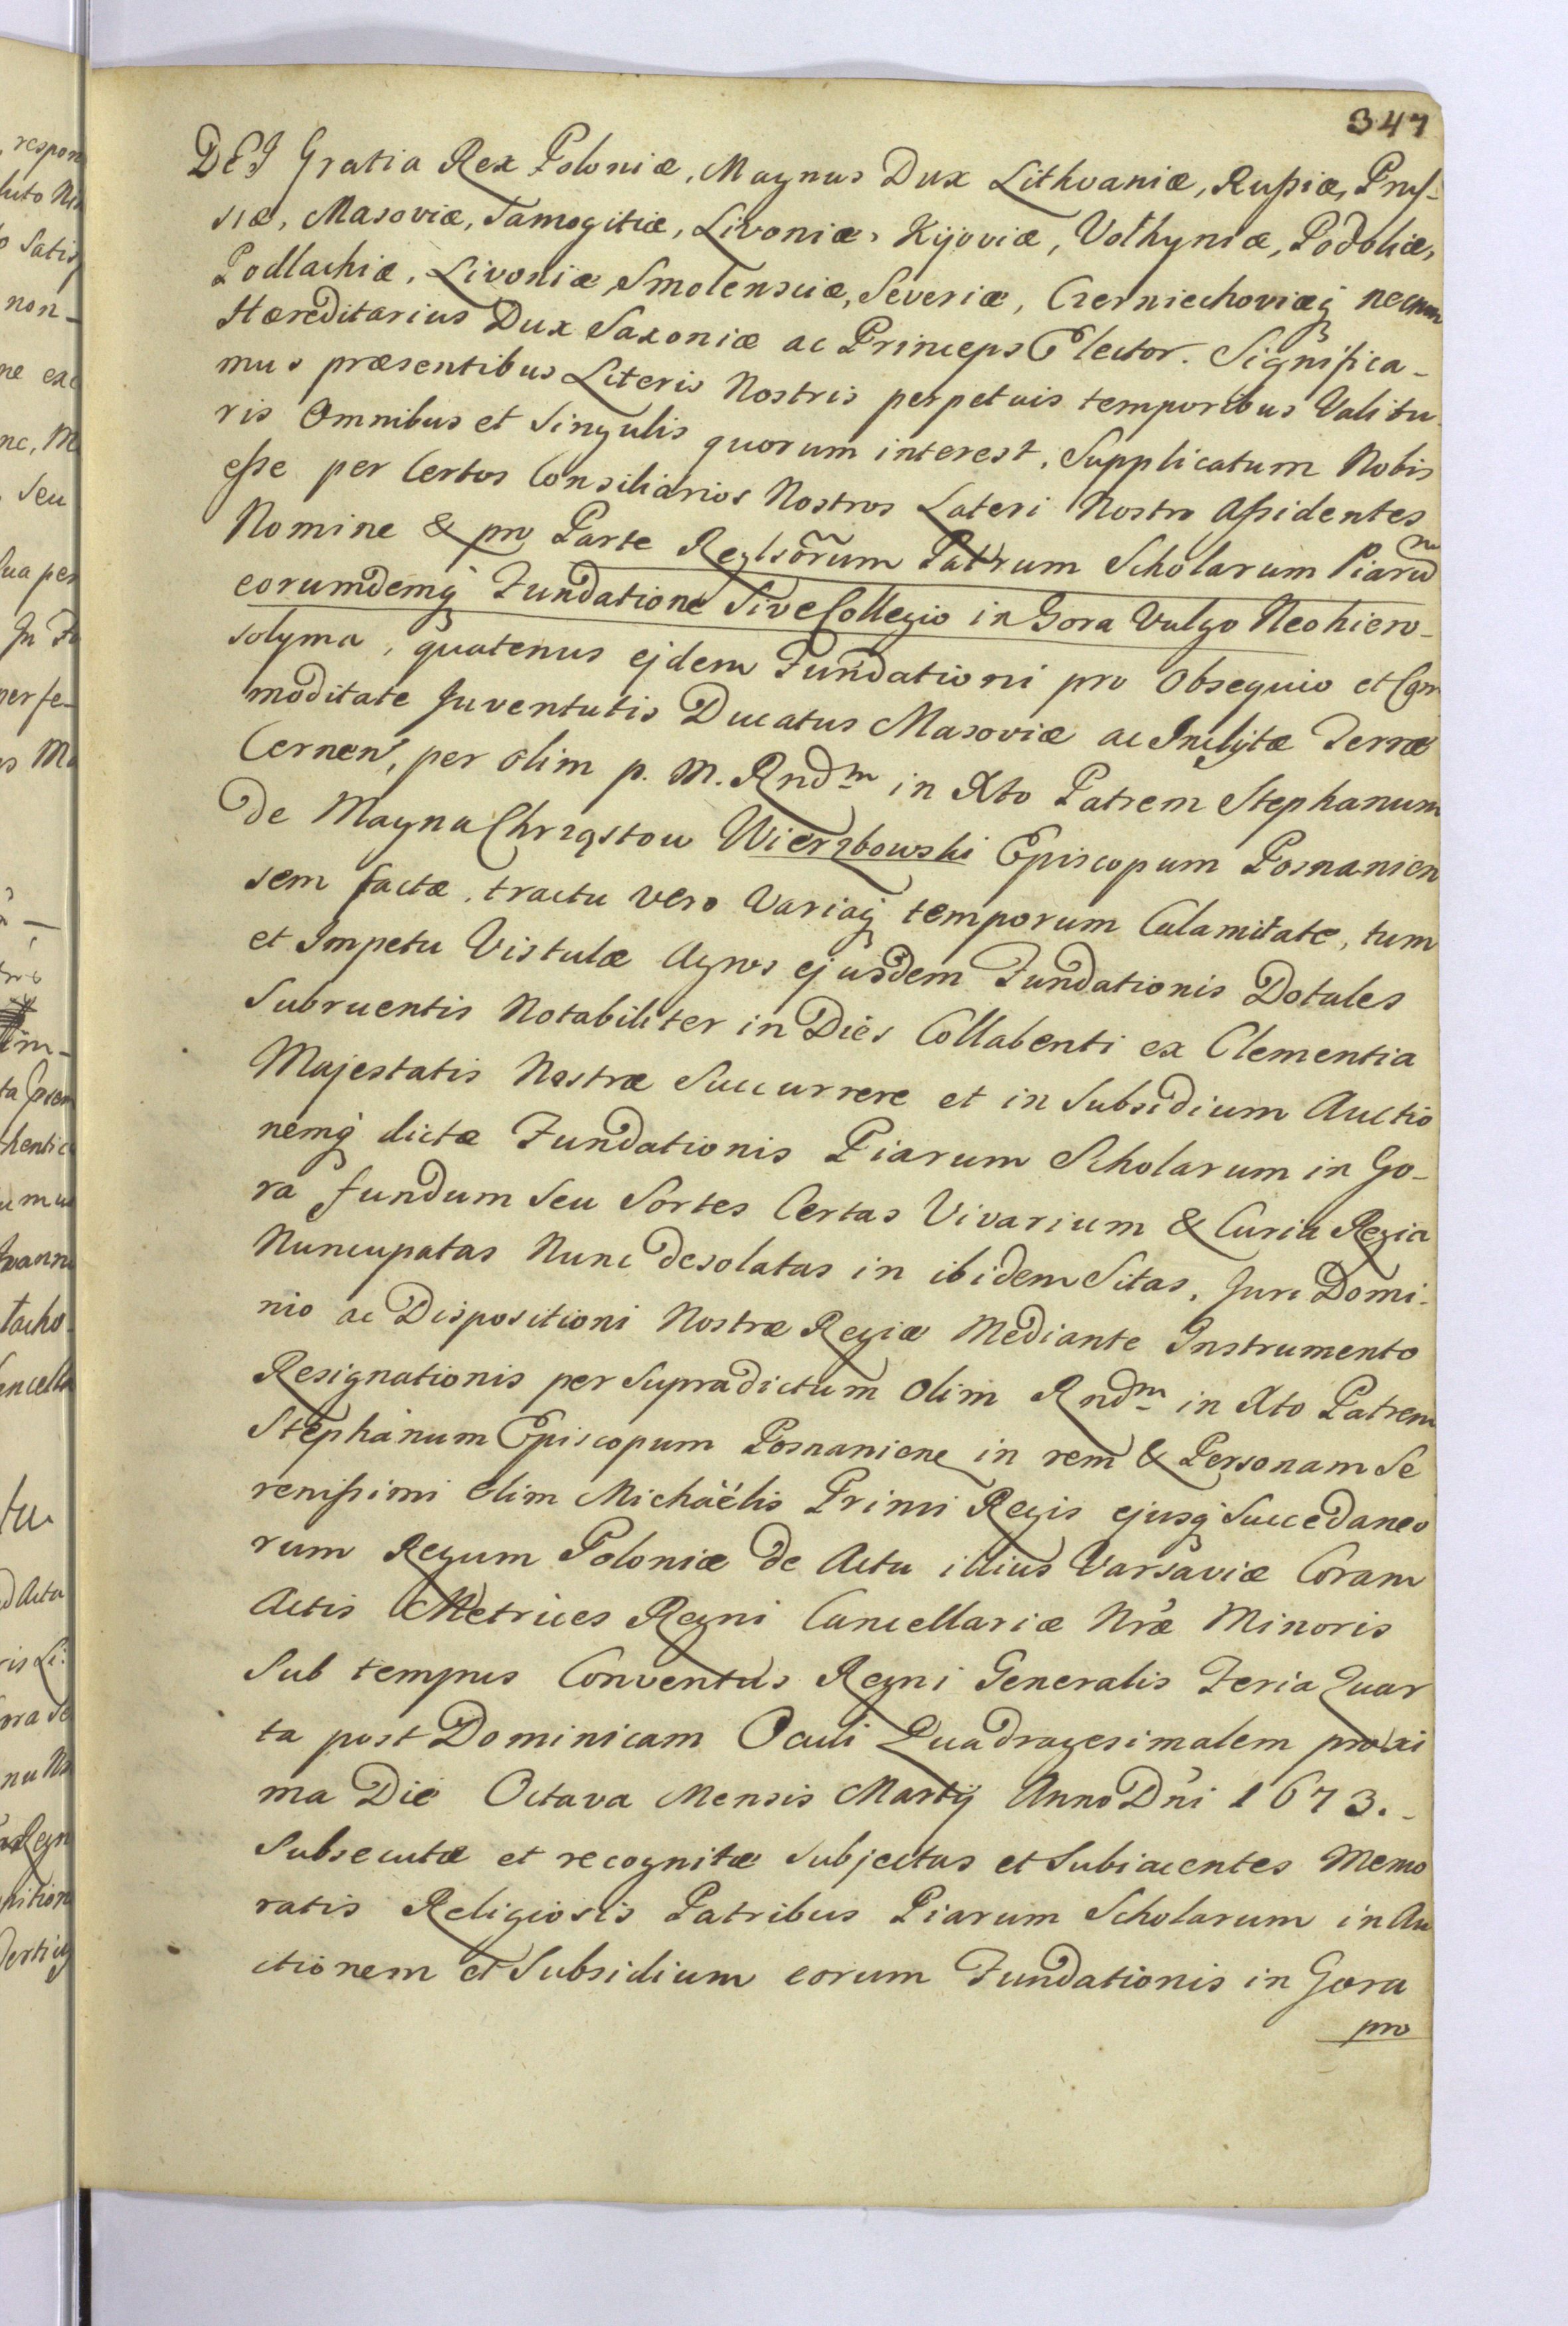 347
DEI Gratia Rex Poloniæ, Magnus Dux Lithvaniæ, Rußiæ, Prus-
siæ, Masoviæ, Samogitiæ, Livoniæ, Kijoviæ, Volhyniæ, Podoliæ,
Podlachiæ, Livoniæ, Smolensciæ, Severiæ, Czerniechoviæq; necnon
Hæreditarius Dux Saxoniæ ac Princeps Elector. Significa-
mus præsentibus Literis Nostris perpetuis temporibus Valitu-
ris Omnibus et Singulis quorum interest, Supplicatum Nobis
eße per Certos Consiliarios Nostros Lateri Nostro Aßidentes
Nomine & pro Parte Reglsorum Patrum Scholarum Piarum
eorumdemq Fundatione Sive Collegio in Gora Vulgo Neohiero-
solyma, quatenus ejdem Fundationi pro Obsequio et Com
moditate Juventutis Ducatus Masoviæ ac Inclytæ Terræ
Cernen, per olim p. M. Rndm in Xto Patrem Stephanum
de Magna Chrząstow Wierzbowski Episcopum Posnanien
sem factæ, tractu vero Variaq temporum Calamitate, tum
et Impetu Vistulæ Agros ejusdem Fundationis Dotales
Subruentis Notabiliter in Dies Collabenti ex Clementia
Majestatis Nostræ Succurrere et in Subsidium Auctio
nemq dictæ Fundationis Piarum Scholarum in Go-
ra fundum Seu Sortes Certas Vivarium & Curia Regia
Nuncupatas Nunc desolatas in ibidem Sitas, Juri Domi-
nio ac Dispositioni Nostræ Regiæ Mediante Instrumento
Resignationis per Supradictum Olim Rndm in Xto Patrem
Stephanum Episcopum Posnaniene in rem & Personam Se
renißimi olim Michaëlis Primi Regis ejusq Succedaneo
rum Regum Poloniæ de Actu illius Varsaviæ Coram
Actis Metrices Regni Cancellariæ Nræ Minoris
Sub tempus Conventus Regni Generalis Feria Quar
ta post Dominicam Oculi Quadragesimalem proxi
ma Die Octava Mensis Martij Anno Dni 1673.-
Subsecutæ et recognitæ subjectas et Subiacentes Memo
ratis Religiosis Patribus Piarum Scholarum in Au
ctionem et Subsidium eorum Fundationis in Gora
pro